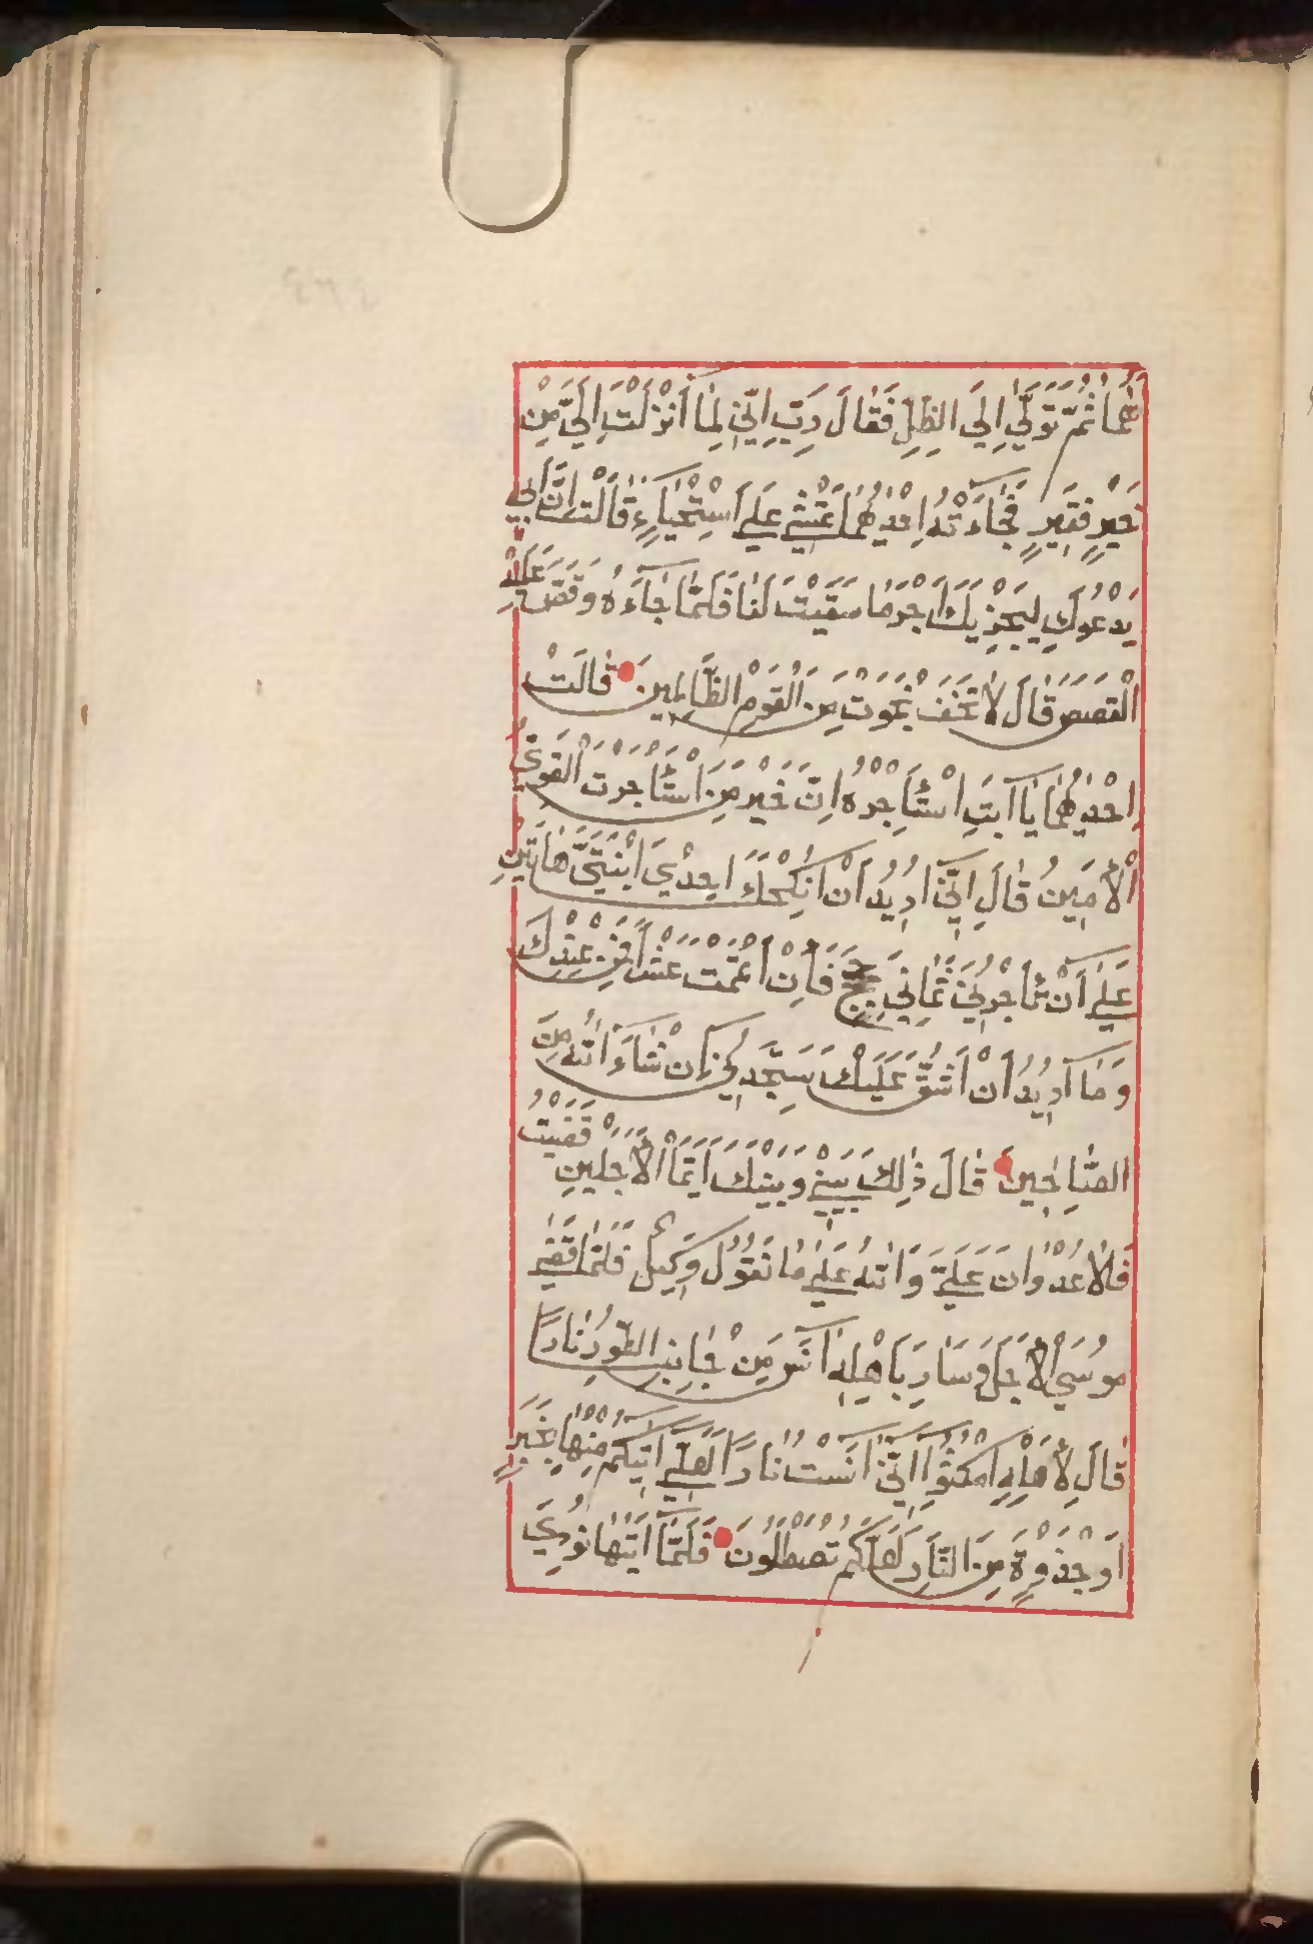 هُمَا ثُمَّ تَوَلَّيٰ اِلَي الظِّلِّ فَقَالَ رَبِّ اِنّي لِمَا اَنْزَلْتَ اِلَيَّ مِنْ
خَيْرٍ فَقِيرٍ فَجَآءَتْهُ اِحْدٰيهُمَا تَمْشِي عَلَي اسْتِحْيَاۤءٍ قَالَتْ اِنَّ اَبِي
يَدْعُوكَ لِيَجْزِيَكَ اَجْرَ مَا سَقَيْتَ لَنَا فَلَمَّا جَآءَهُ وَقَصَّ عَلَيْهِ
الْقَصَصَ قَالَ لَا تَخَفْ نَجَوْتَ مِنَ الْقَوْمِ الظَّالِمِينَ قَالَتْ
اِحْدٰيهُمَا يَا اَبَتِ اسْتَأْجِرْهُ اِنَّ خَيْرَ مَنِ اسْتَأْجَرْتَ الْقَوِيُّ
الْاَمِينُ قَالَ اِنّي اُرِيدُ اَنْ اُنْكِحَكَ اِحْدَي ابْنَتَيَّ هَاتَيْنِ
عَلَيٰ اَنْ تَأْجُرَنِي ثَمَانِيَ حِجَجٍ فَاِنْ اَتْمَمْتَ عَشْرًا فَمِنْ عِنْدِكَ
وَمَا اُرِيدُ اَنْ اَشُقَّ عَلَيْكَ سَتَجِدُنِي اِنْ شَآءَ اللّٰهُ مِنَ
الصَّالِحِينَ قَالَ ذٰلِكَ بَيْنِي وَبَيْنَكَ اَيَّمَا الْاَجَلَيْنِ قَضَيْتُ
فَلَا عُدْوَانَ عَلَيَّ وَاللّٰهُ عَلَيٰ مَا نَقُولُ وَكِيلٌ فَلَمَّا قَضَيٰ
مُوسَي الْاَجَلَ وَسَارَ بِاَهْلِهِ اٰنَسَ مِنْ جَانِبِ الطُّورِ نَارًا
قَالَ لِاَهْلِهِ امْكُثُوا اِنّي اٰنَسْتُ نَارًا لَعَلّي اٰتِيكُمْ مِنْهَا بِخَبَرٍ
اَوْ جَذْوَةٍ مِنَ النَّارِ لَعَلَّكُمْ تَصْطَلُونَ فَلَمَّا اَتٰيهَا نُودِيَ